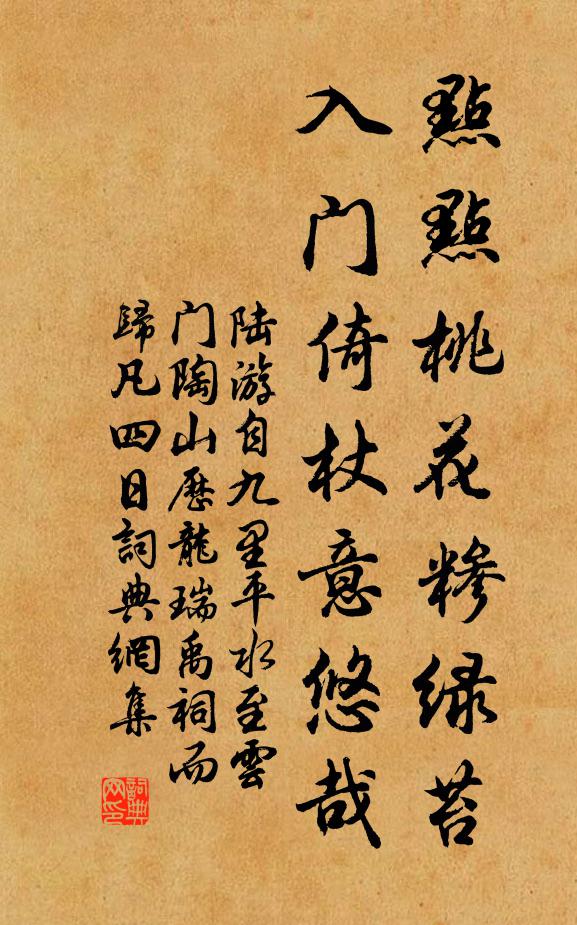 點點桃花糝绿苔
入门倚杖意悠哉
陆游自九里平水至雲
门陶山歷龍瑞禹祠而
歸凡四日詞典網集
詞典网印